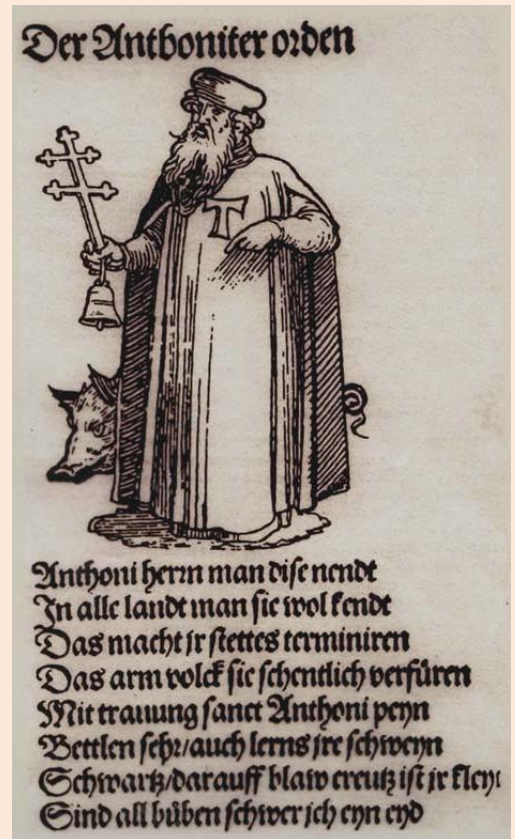 Der Anthoniter orden
Anthoni herrn man dise nendt
In alle landt man sie wol kendt
Das macht jr stettes terminiren
Das arm volck sie schentlich verfüren
Mit trauung sanct Anthoni peyn
Bettlen sehr/auch lerns jre schweyn
Schwartz/darauff blaw creutz ist jr kley
Sind all büben schwer jch eyn eyd